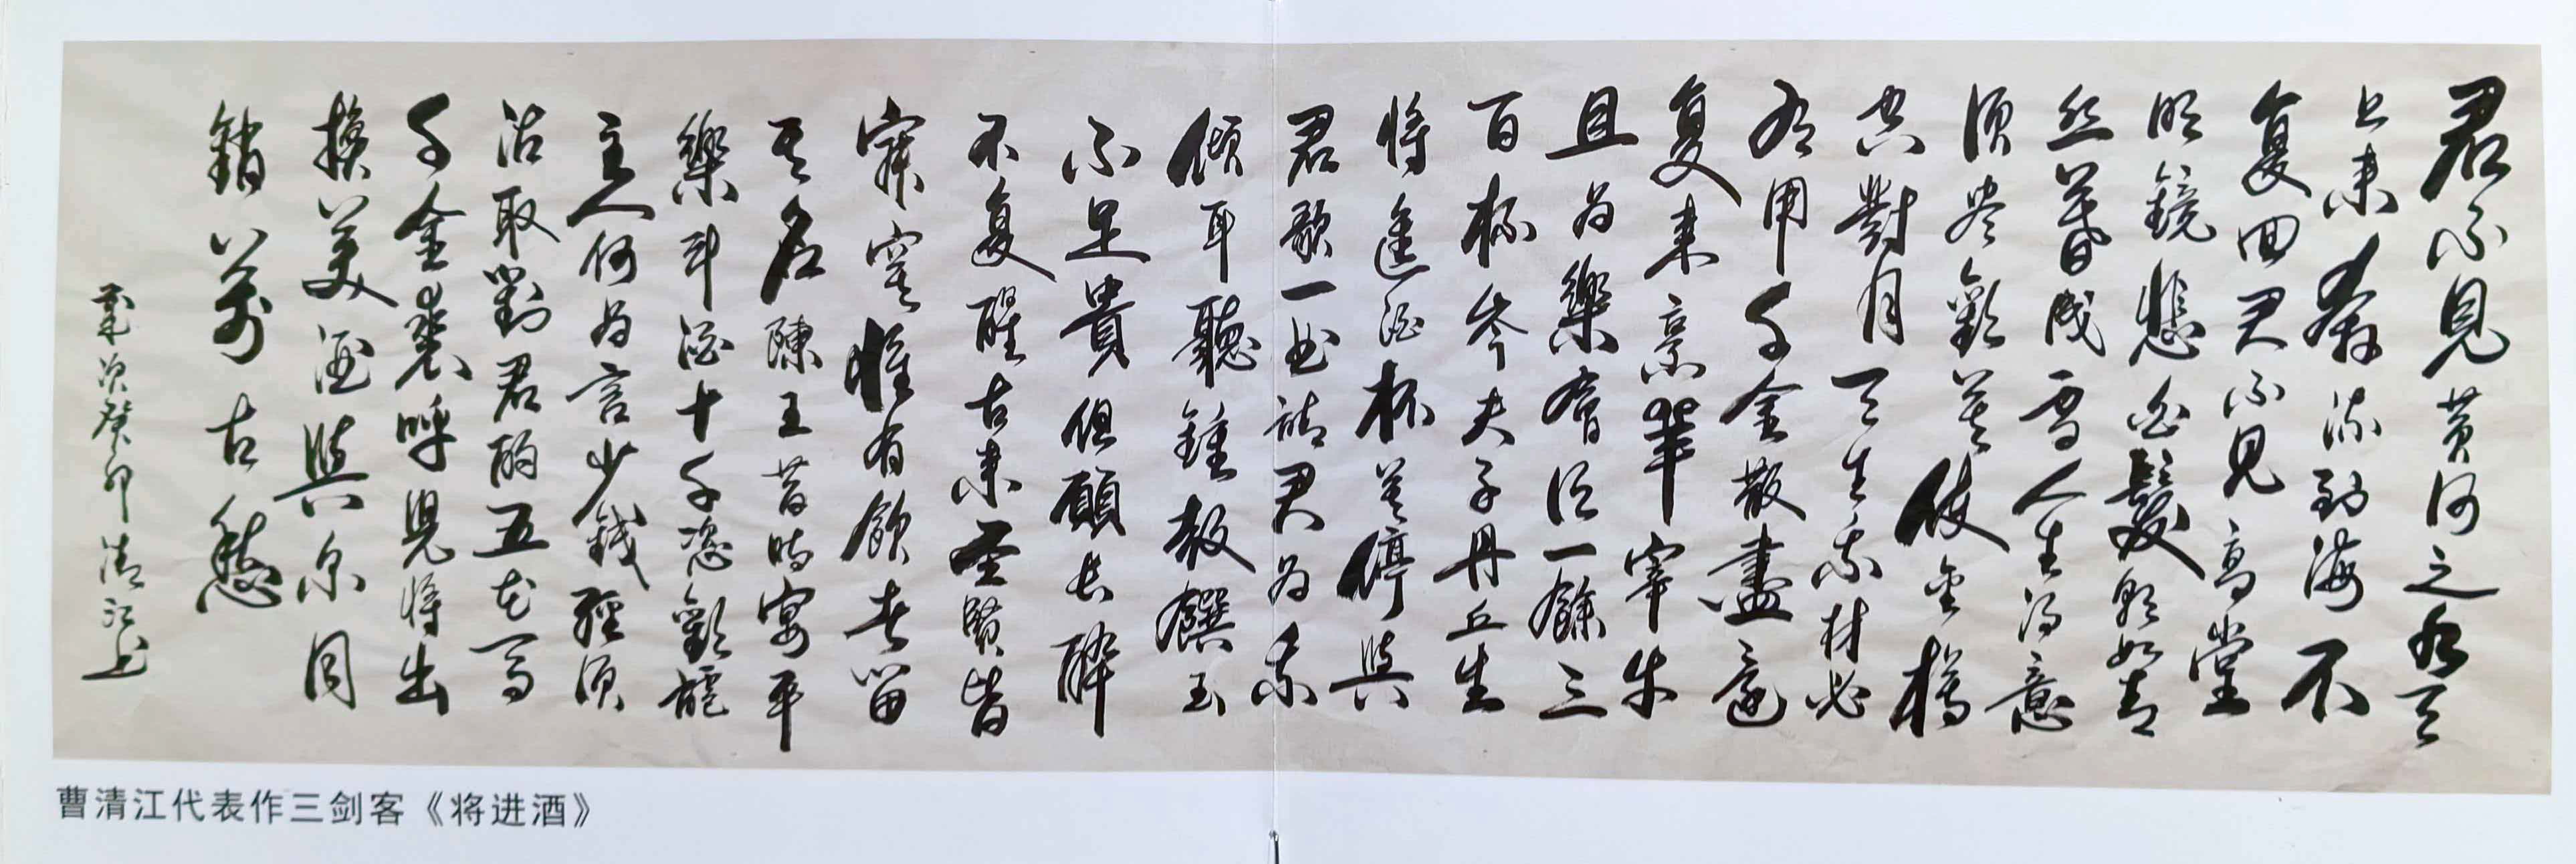 君不見黄河之水天
上来奔流到海不
复回君不見高堂
明鏡悲白髮朝如青
丝暮成雪人生得意
须尽歡莫使金樽
空對月天生我材必
有用千金散盡還
复来烹羊宰牛
且为樂會须一飲三
百杯岑夫子丹丘生
将進酒杯莫停與
君歌一曲請君为我
傾耳聽鍾鼓饌玉
不足貴但願长醉
不复醒古来圣賢皆
寂寞惟有飲者留
其名陳王昔時宴平
樂斗酒十千恣歡謔
主人何为言少錢徑须
沽取對君酌五花马
千金裘呼兒将出
換美酒與尔同
銷萬古愁
歲次癸卯清江书
曹清江代表作三剑客《将进酒》